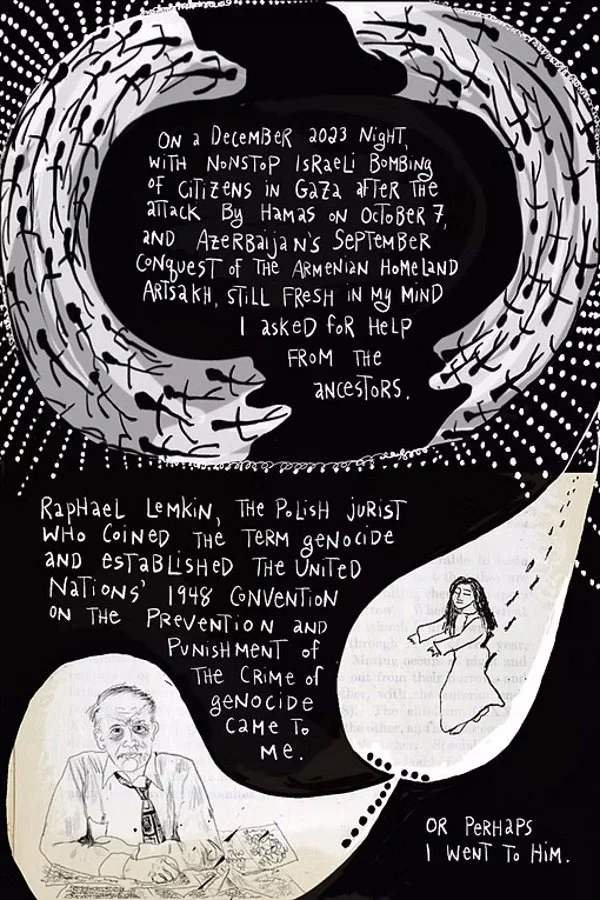 ON a DECEMBER 2023 NigHT,
WITH NONSTOP ISRaELi BOMBiNg
OF CiTiZENS iN GaZa aFTER THE
aTTaCK BY HAMAS ON OCTOBER 7,
AND AZERBaijaN'S SEPTEMBER
CONQUEST OF THE ARMENiAN HOMELAND
ARTSaKH, STiLL FRESH iN My MiND
I aSKED FOR HELP
FROM THE
aNCESTORS.
RapHaEL LEMKiN, THE POLiSH jURiST
WHO COiNED THE TERM gENOCiDE
aND ESTaBLiSHED THE UNiTED
NaTiONS' 1948 CONVENTiON
ON THE PREVENTiON aND
PUNiSHMENT OF
THE CRiME OF
gENOCiDE
CaME TO
ME.
OR PERHaPS
I WENT TO HiM.